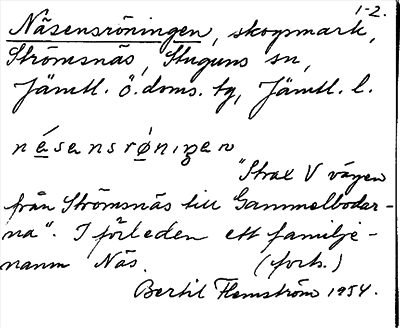 1-2.
Näsensröningen, skogsmark,
Strömsnäs, Stuguns sn,
Jämtl. ö. doms. tg, Jämtl. l.
nésensrǿniŋen
"Strax V vägen
från Strömsnäs till Gammelbodar-
na". I förleden ett familje-
namn Näs. (forts.)
Bertil Flemström 1954.